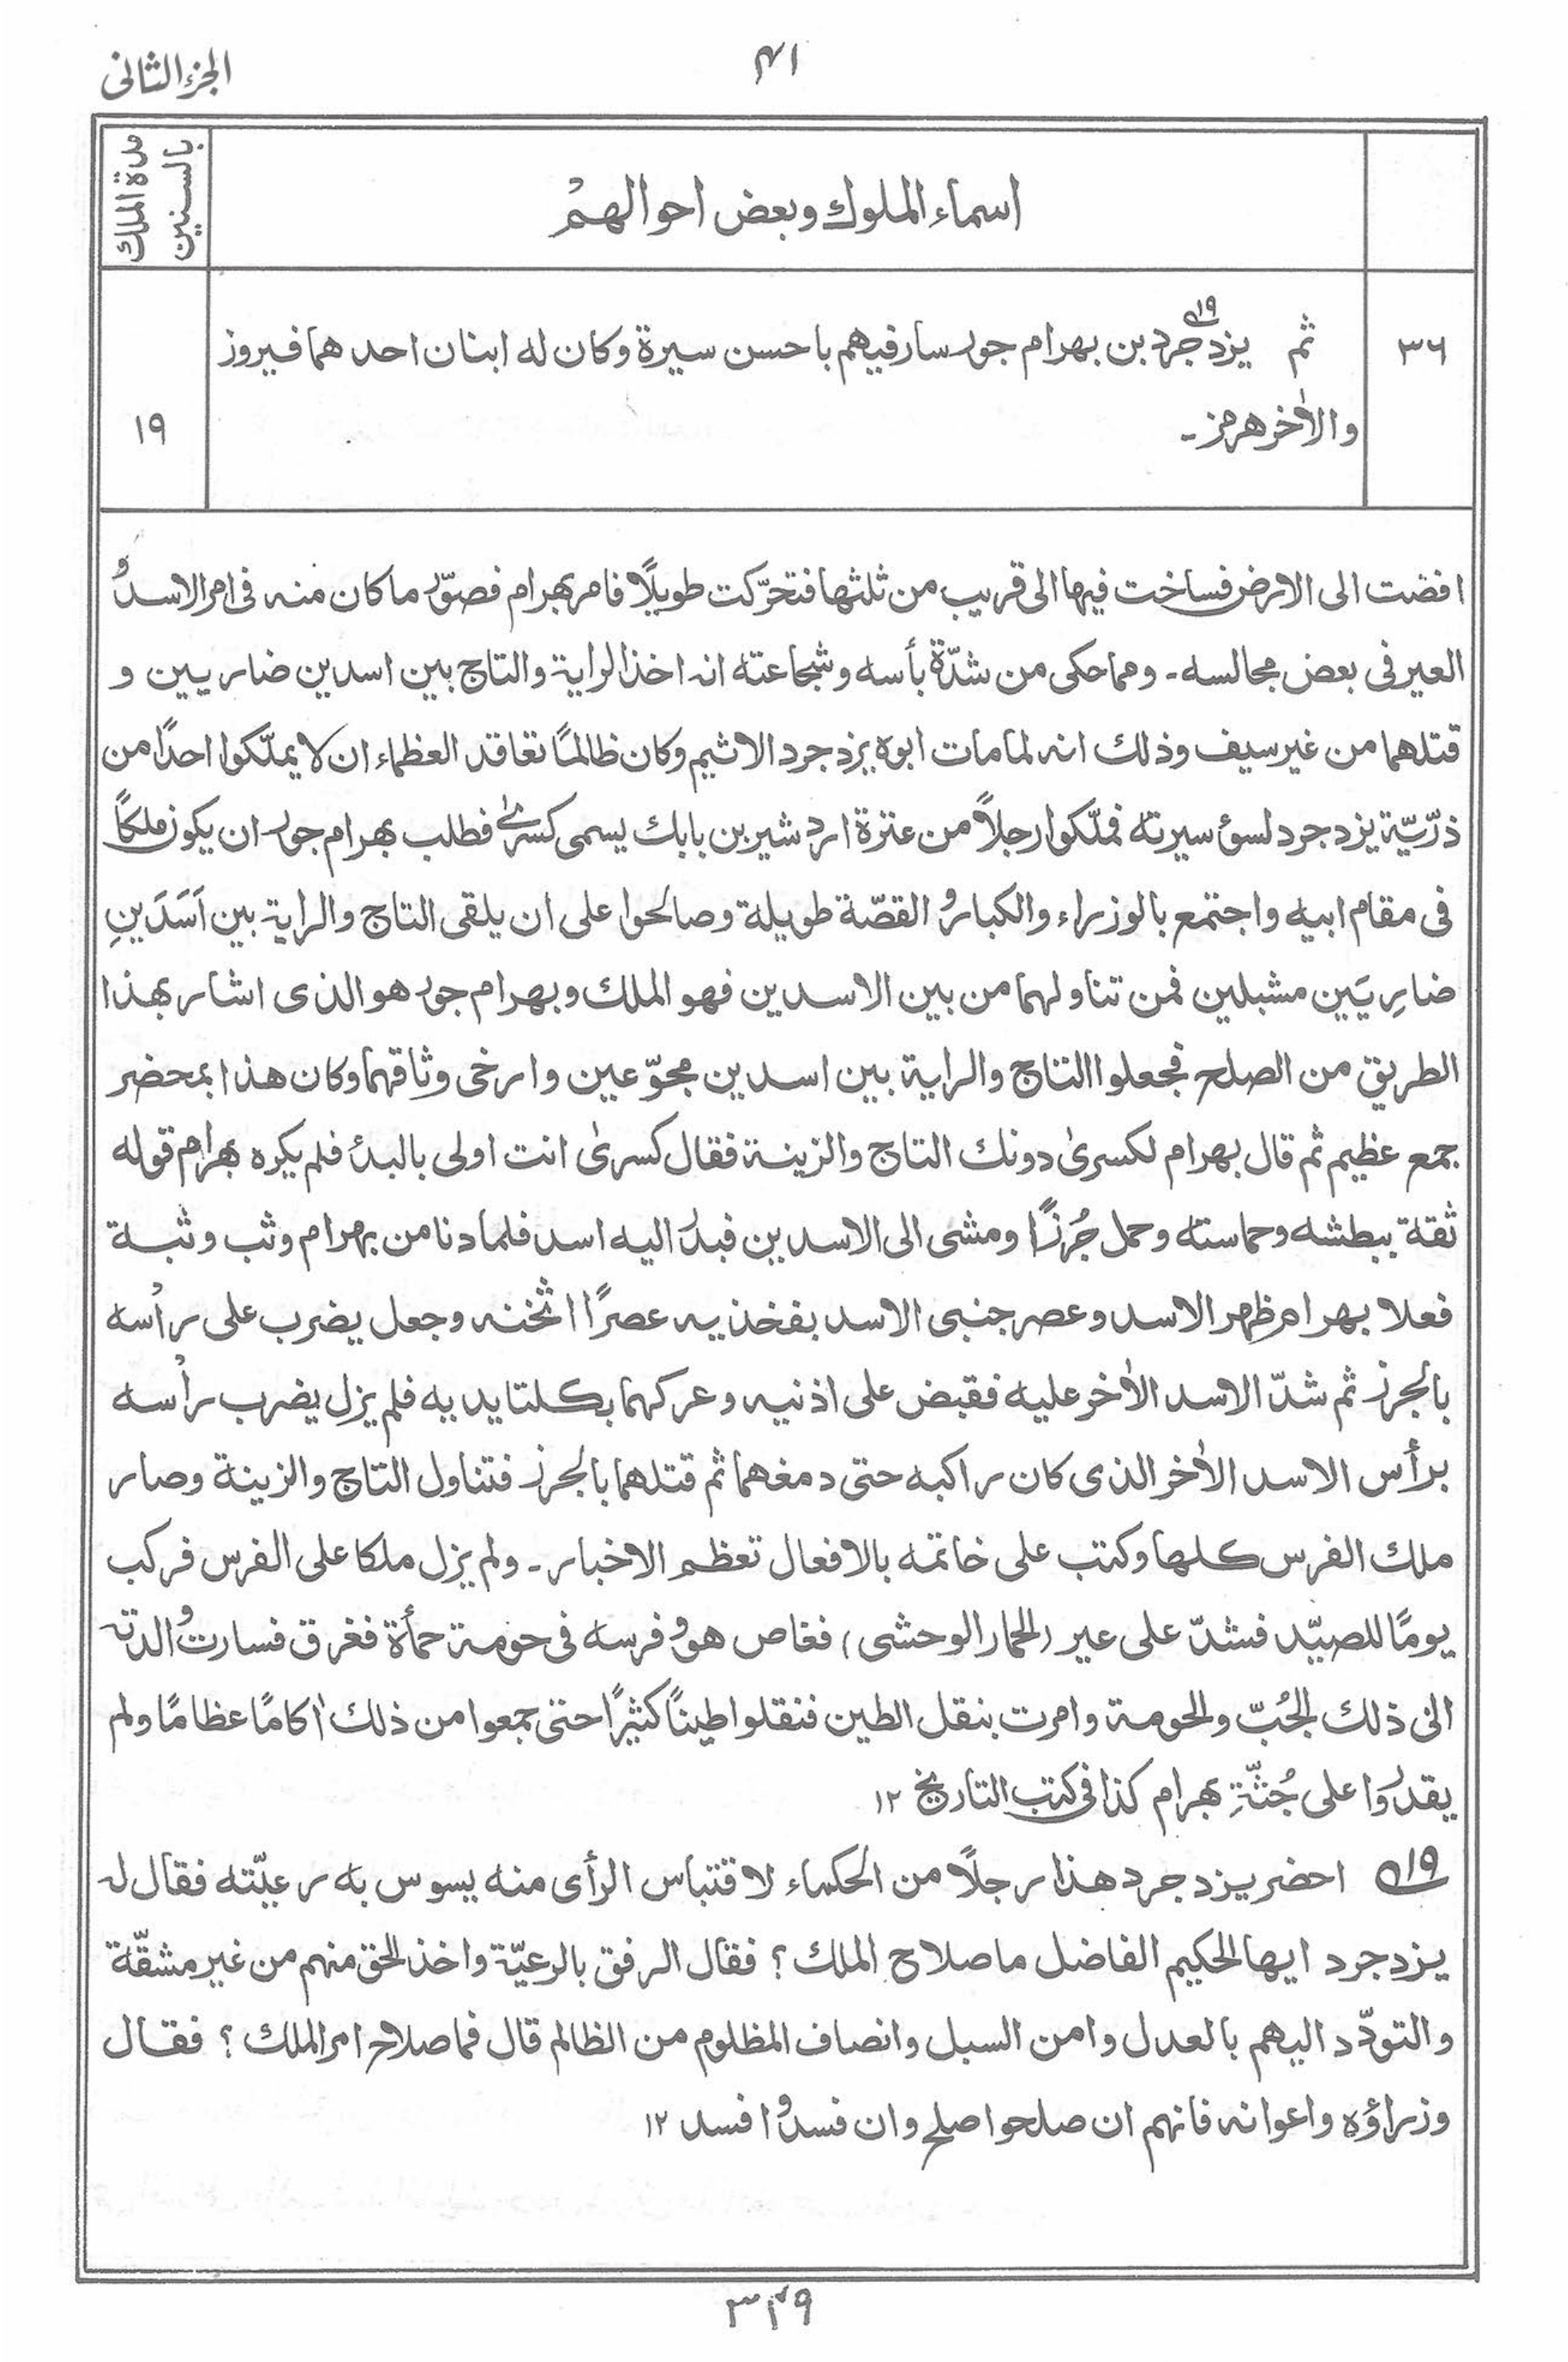 الجزء الثانى
٤١
مدة الملك بالسنين
اسماء الملوك وبعض احوالهم
٣٦
ثم يزدجرد بن بهرام جور سار فيهم باحسن سيرة وكان له ابنان احدهما فيروز
١٩
والاٰخر هرمز ـ
١٩
افضت الى الارض فساخت فيها الى قريب من ثلثها فتحرّكت طويلًا فامر بهرام فصوّر ما كان منه فى امر الاسد و
العير فى بعض مجالسه ـ ومما حكى من شدّة بأسه وشجاعته انه اخذ الراية والتاج بين اسدين ضاريين و
قتلهما من غير سيف وذلك انه لما مات ابوه يزدجرد الاثيم وكان ظالمًا تعاقد العظماء ان لا يملّكوا احدًا من
ذرّيّة يزدجرد لسوئ سيرته فملّكوا رجلاً من عترة اردشير بن بابك يسمى كسرىٰ فطلب بهرام جور ان يكون ملكًا
فى مقام ابيه واجتمع بالوزراء والكبار و القصّة طويلة وصالحوا على ان يلقى التاج والراية بين اَسَدَينِ
ضارِيَين مشبلين فمن تناولهما من بين الاسدين فهو الملك وبهرام جور هو الذى اشار بهذا
الطريق من الصلح فجعلوا التاج والراية بين اسدين مجوّعين وارخى وثاقهما وكان هذا بمحضر
جمع عظيم ثم قال بهرام لكسرىٰ دونك التاج والزينة فقال كسرىٰ انت اولى بالبدئ فلم يكره بهرام قوله
ثقة ببطشه وحماسته وحمل جُرزًا ومشى الى الاسدين فبدر اليه اسد فلما دنا من بهرام وثب وثبة
فعلا بهرام ظهر الاسد وعصر جنبى الاسد بفخذيه عصرًا اثخنه وجعل يضرب على رأسه
بالجرز ثم شدّ الاسد الاٰخر عليه فقبض على اذنيه وعركهما بكلتا يديه فلم يزل يضرب رأسه
برأس الاسد الاٰخر الذى كان راكبه حتى دمغهما ثم قتلهما بالجرز فتناول التاج والزينة وصار
ملك الفرس كلها وكتب على خاتمه بالافعال تعظم الاخبار ـ ولم يزل ملكا على الفرس فركب
يومًا للصيّد فشدّ على عير (الحمار الوحشى) فغاص هو و فرسه فى حومة حمأة فغرق فسارت والدته
الى ذلك الجُبّ والحومة وامرت بنقل الطين فنقلوا طينًا كثيرًا حتى جمعوا من ذلك اٰكامًا عظامًا ولم
يقدروا على جُثّةِ بهرام كذا فى كتب التاريخ ١٢
١٩ احضر يزدجرد هذا رجلًا من الحكماء لاقتباس الرأى منه يسوس به رعيّته فقال له
يزدجرد ايها الحكيم الفاضل ما صلاح الملك ؟ فقال الرفق بالرعيّة واخذ الحق منهم من غير مشقّة
والتودّد اليهم بالعدل وامن السبل وانصاف المظلوم من الظالم قال فما صلاح امر الملك ؟ فقال
وزراؤه واعوانه فانهم ان صلحوا صلح وان فسدوا فسد ١٢